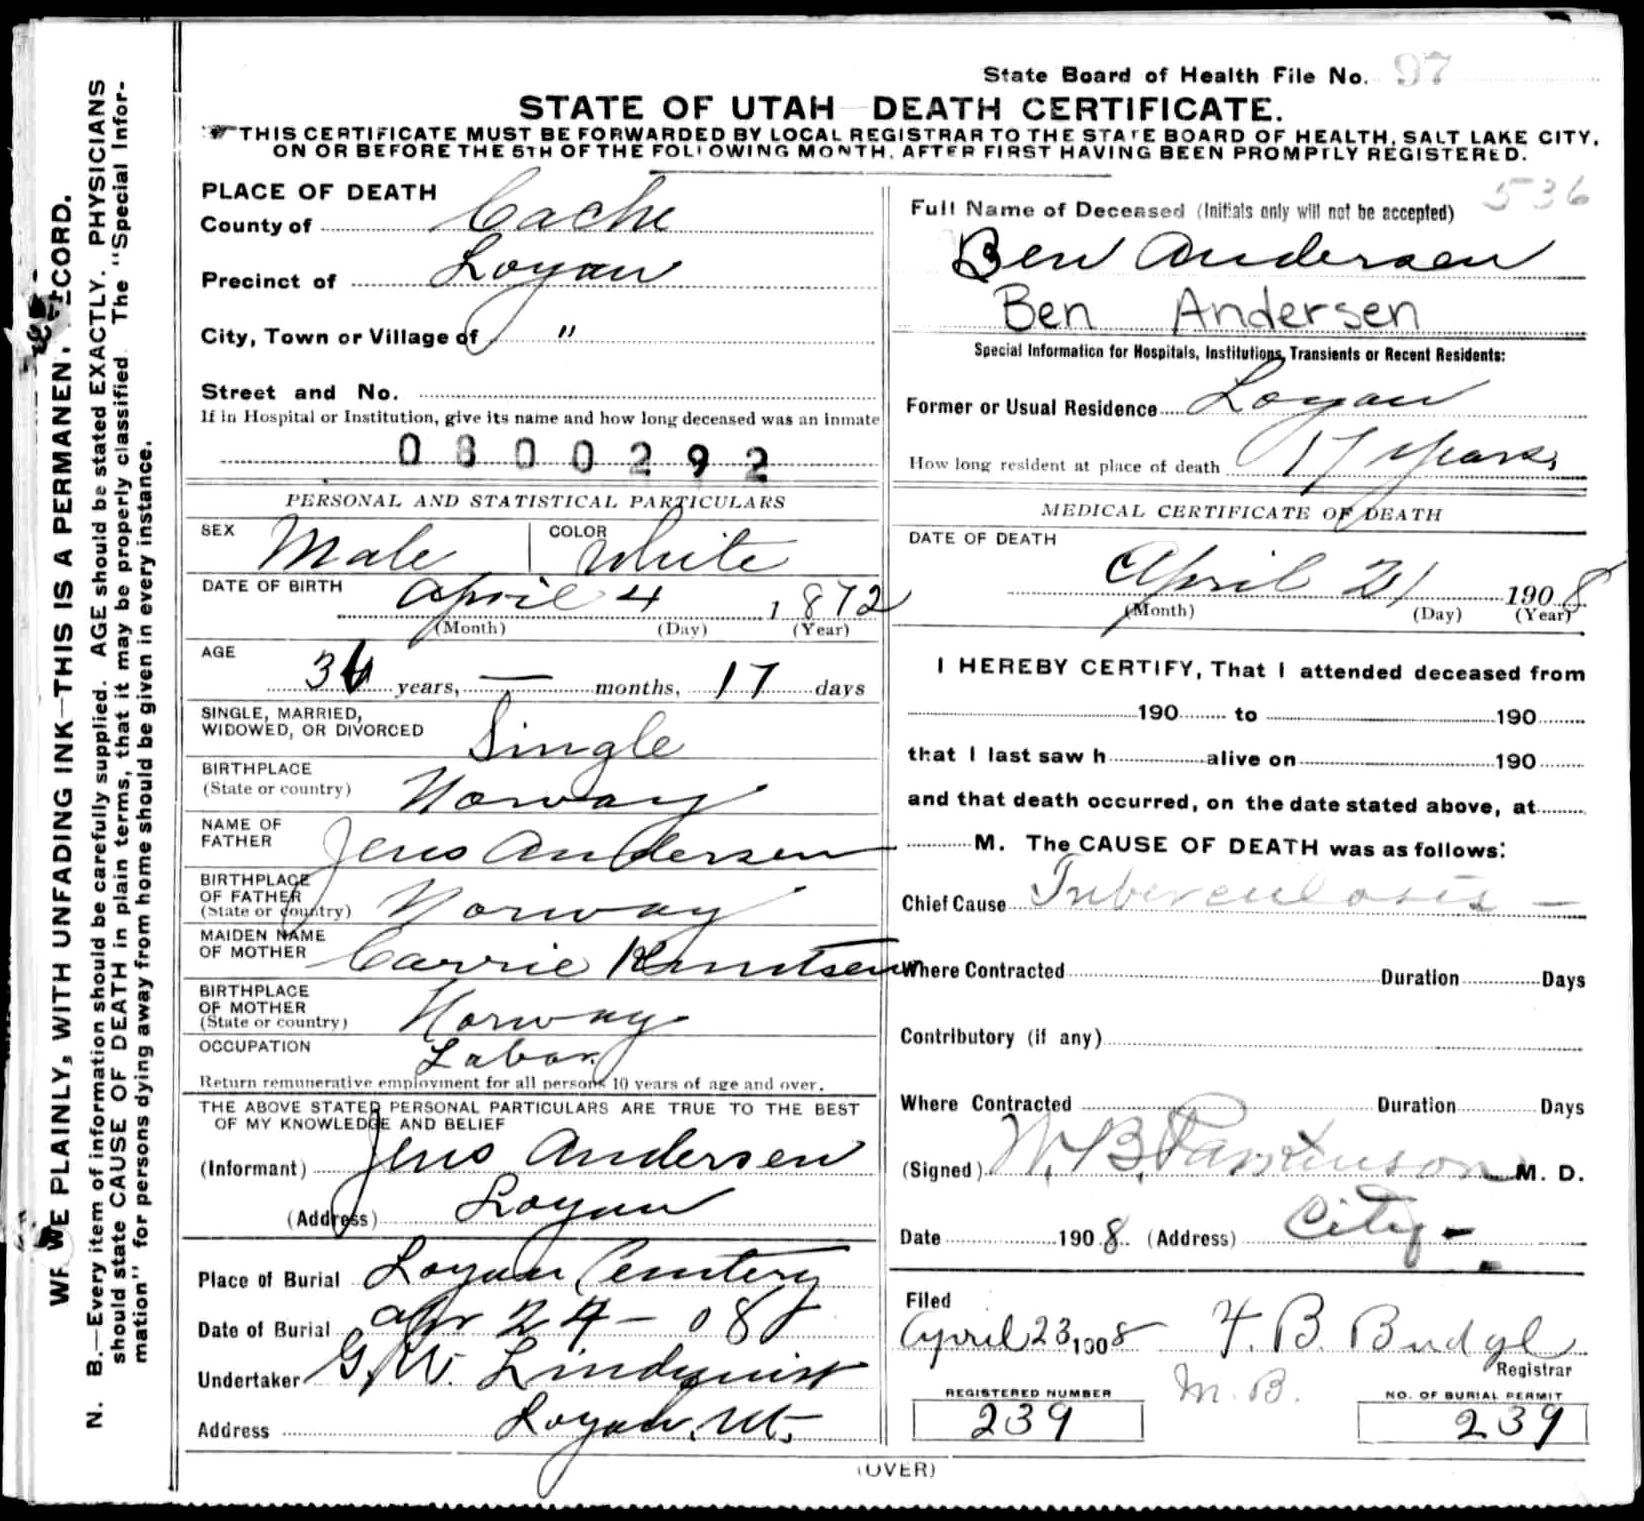 State Board of Health File No. 97
STATE OF UTAH—DEATH CERTIFICATE.
THIS CERTIFICATE MUST BE FORWARDED BY LOCAL REGISTRAR TO THE STATE BOARD OF HEALTH, SALT LAKE CITY,
ON OR BEFORE THE 5TH OF THE FOLLOWING MONTH, AFTER FIRST HAVING BEEN PROMPTLY REGISTERED.
PLACE OF DEATH
County of Cache
Precinct of Logan
City, Town or Village of "
Street and No.
If in Hospital or Institution, give its name and how long deceased was an inmate
0300292
PERSONAL AND STATISTICAL PARTICULARS
SEX Male COLOR White
DATE OF BIRTH April 4 1872
(Month) (Day) (Year)
AGE
36 years, — months, 17 days
SINGLE, MARRIED,
WIDOWED, OR DIVORCED Single
BIRTHPLACE
(State or country) Norway
NAME OF
FATHER Jens Andersen
BIRTHPLACE
OF FATHER
(State or country) Norway
MAIDEN NAME
OF MOTHER Carrie Knutsen
BIRTHPLACE
OF MOTHER
(State or country) Norway
OCCUPATION Labor
Return remunerative employment for all persons 10 years of age and over.
THE ABOVE STATED PERSONAL PARTICULARS ARE TRUE TO THE BEST
OF MY KNOWLEDGE AND BELIEF
(Informant) Jens Andersen
(Address) Logan
Place of Burial Logan Cemtery
Date of Burial Apr 24 - 08
Undertaker G. W. Lindquist
Address Logan, Ut.
536
Full Name of Deceased (Initials only will not be accepted)
Ben Andersen
Ben Andersen
Special Information for Hospitals, Institutions, Transients or Recent Residents:
Former or Usual Residence Logan
How long resident at place of death 17 years
MEDICAL CERTIFICATE OF DEATH
DATE OF DEATH
April 21 1908
(Month) (Day) (Year)
I HEREBY CERTIFY, That I attended deceased from
190 to 190
that I last saw h alive on 190
and that death occurred, on the date stated above, at
M. The CAUSE OF DEATH was as follows:
Chief Cause Tuberculosis —
Where Contracted Duration Days
Contributory (if any)
Where Contracted Duration Days
(Signed) W. B. Parkinson M. D.
Date 1908 (Address) City -
Filed
April 23 1908 F. B. Budge
Registrar
M. B.
REGISTERED NUMBER
239
NO. OF BURIAL PERMIT
239
(OVER)
WRITE PLAINLY, WITH UNFADING INK—THIS IS A PERMANENT RECORD.
N. B.—Every item of information should be carefully supplied. AGE should be stated EXACTLY. PHYSICIANS
should state CAUSE OF DEATH in plain terms, that it may be properly classified. The "Special Infor-
mation" for persons dying away from home should be given in every instance.